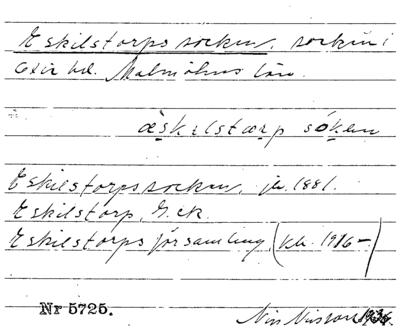 Eskilstorps socken, socken i
Oxie hd. Malmöhus län.
æskilstærp sóken
Eskilstorps socken, jb. 1881.
Eskilstorp, G.ek.
Eskilstorps församling, (kb. 1916–)
Nr 5725.
Nils Nilsson 1936